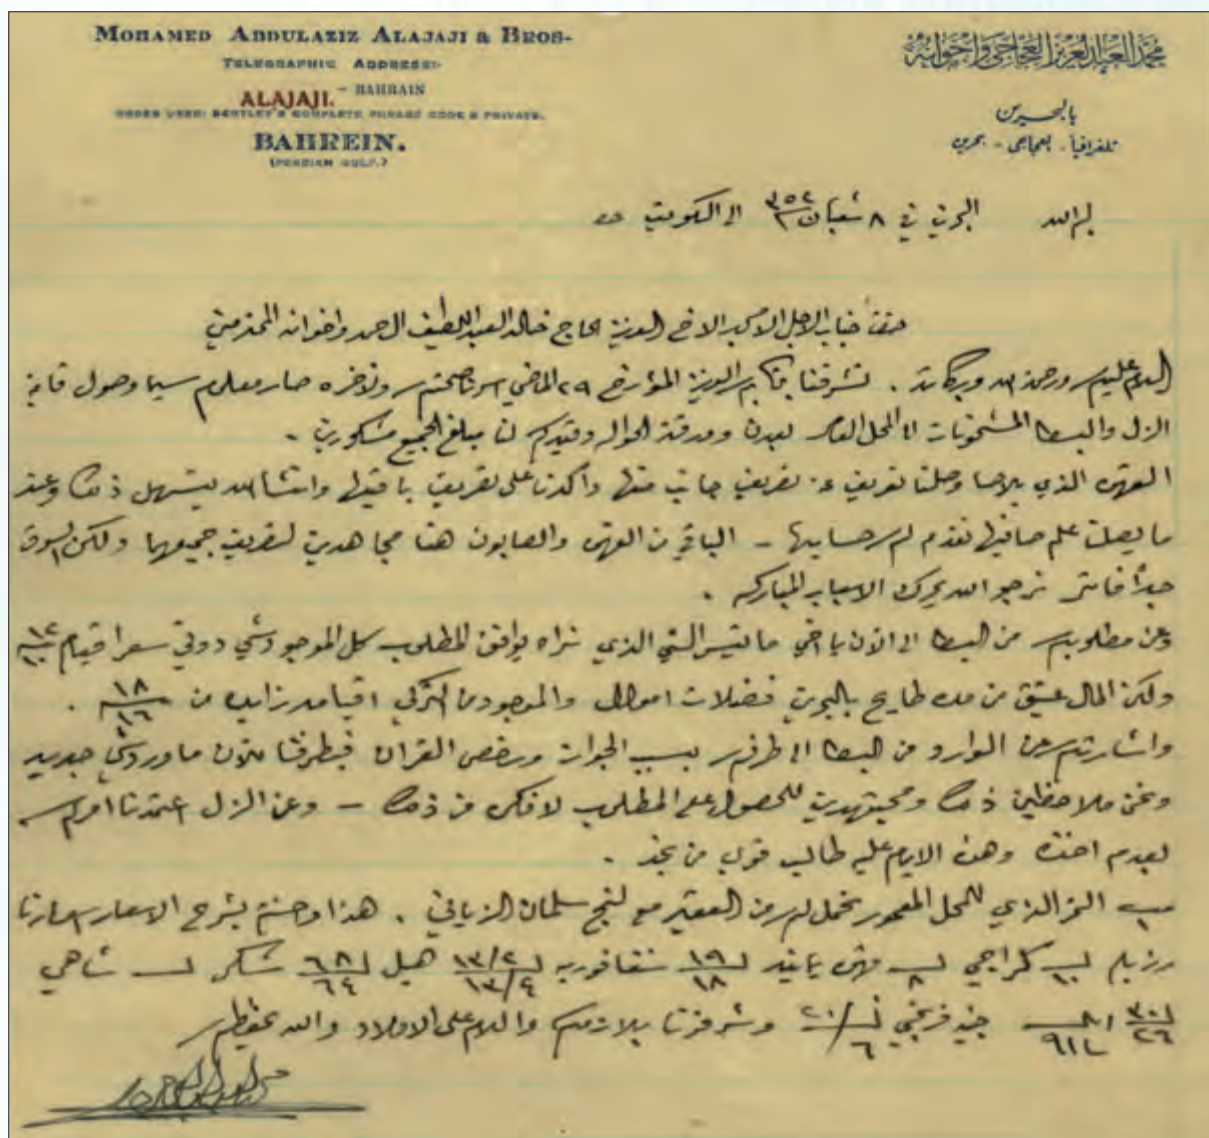 MOHAMED ABDULAZIZ ALAJAJI & BROS-
TELEGRAPHIC ADDRESS:-
ALAJAJI. - BAHRAIN
CODES USED: BENTLEY'S COMPLETE PHRASE CODE & PRIVATE.
BAHREIN.
(PERSIAN GULF.)
محمد العبدالعزيز العجاجي واخوانه
بالبحرين
تلغرافياً - عجاجي - بحرين
البحرين في ٨ شعبان ٣٥٢ الى الكويت
جناب الاجل الامجد الاخ العزيز الحاج خالد العبداللطيف الحمد واخوانه المحترمين
السلام عليكم ورحمة الله وبركاته . تشرفنا بكتابكم العزيز المؤرخ ٢٩ الماضي صحتكم وما ذكره صار معلوم سيما وصول قايمة
الزل والبسط المشحونات الى المحل لعدن وورقة الحواله وقيدكم لنا مبلغ الجميع مشكورين -
القهوه الذي بالاحسا وصلنا تعريف عن تصريف جانب منها واكدنا على تصريف باقيها وانشاالله يتسهل ذلك وعند
ما يصلنا علم صافيها نقدم لكم حسابها - الباقي من القهوه والصابون هنا مجاهدين لتصريف جميعها ولكن السوق
جداً فاتر نرجو الله يحرك الاسباب المباركه .
وعن مطلوبكم من البسط الى الآن يا اخي ما تيسر الشي الذي نراه يوافق المطلوب كل الموجود شي دوني سعر اقيام
ولكن المال عتيق من مده طايح بالبحرين فضلات اموال والموجود من التركي اقيامه زايده من ١٨/١٦ .
واشارتكم عن الوارد من البسط الى طرفكم بسبب الجوازات ورخص القران فبطرفنا للآن ما ورد شي جديد
ونحن ملاحظين ذلك ومجتهدين للحصول على المطلوب لا فكره من ذلك - وعن الزل اعتمدنا امركم
بعدم اخذه وهذه الايام عليه طالب قوي من نجد .
الذي للمحل المعمور تحمل لكم من العقير مع لنج سلمان الزياني . هذا وحسبكم بشرح الاسعار
كراجي ٨ ١٩/١٨ سنقافوريه ١٣/٢ ١٣/٤ هيل ٦٨/٦٤ شكر شاهي
٣٠/٢٦ جنيه وشرفونا بلازمكم والسلام على الاولاد والله يحفظكم